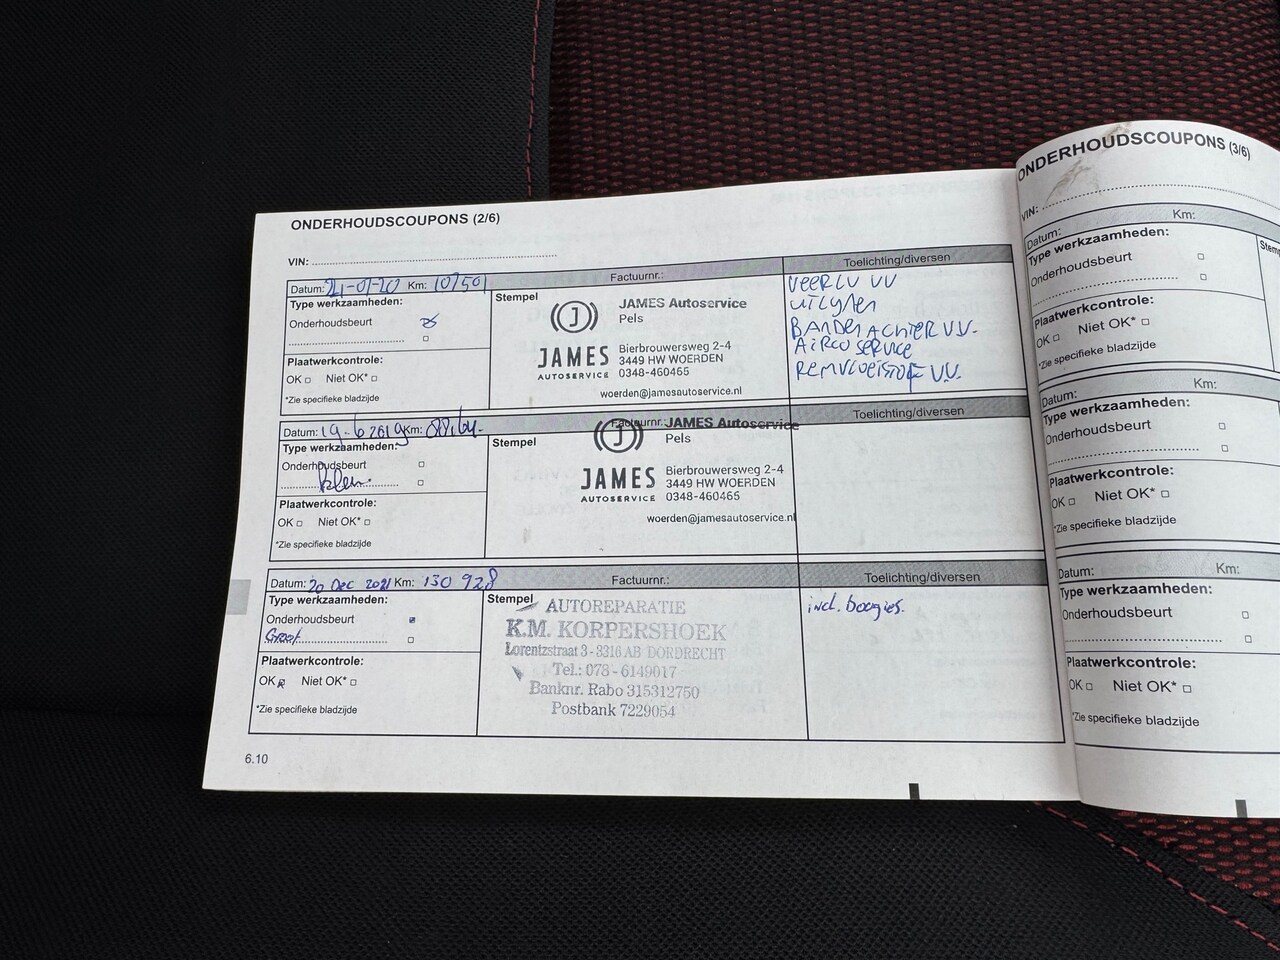 ONDERHOUDSCOUPONS (2/6)
VIN:
Datum: 21-07-20 Km: 107501 Factuurnr.: Toelichting/diversen
Type werkzaamheden:
Onderhoudsbeurt
Plaatwerkcontrole:
OK Niet OK*
*Zie specifieke bladzijde
Stempel
JAMES
AUTOSERVICE
JAMES Autoservice
Pels
Bierbrouwersweg 2-4
3449 HW WOERDEN
0348-460465
woerden@jamesautoservice.nl
VV
uitlijnen
Banden achter V.V.
Airco service
Remvloeistof V.V.
Datum: 19-6 2019 Km: Factuurnr.: Toelichting/diversen
Type werkzaamheden:
Onderhoudsbeurt
Plaatwerkcontrole:
OK Niet OK*
*Zie specifieke bladzijde
Stempel
JAMES
AUTOSERVICE
JAMES Autoservice
Pels
Bierbrouwersweg 2-4
3449 HW WOERDEN
0348-460465
woerden@jamesautoservice.nl
Datum: 20 Dec 2021 Km: 130 928 Factuurnr.: Toelichting/diversen
Type werkzaamheden:
Onderhoudsbeurt
Groot
Plaatwerkcontrole:
OK Niet OK*
*Zie specifieke bladzijde
Stempel
AUTOREPARATIE
K.M. KORPERSHOEK
Lorentzstraat 3 - 3316 AB DORDRECHT
Tel.: 078 - 6149017
Banknr. Rabo 315312750
Postbank 7229054
incl. bougies.
6.10
ONDERHOUDSCOUPONS (3/6)
VIN:
Datum: Km:
Type werkzaamheden:
Onderhoudsbeurt
Plaatwerkcontrole:
OK Niet OK*
*Zie specifieke bladzijde
Datum: Km:
Type werkzaamheden:
Onderhoudsbeurt
Plaatwerkcontrole:
OK Niet OK*
*Zie specifieke bladzijde
Datum: Km:
Type werkzaamheden:
Onderhoudsbeurt
Plaatwerkcontrole:
OK Niet OK*
*Zie specifieke bladzijde